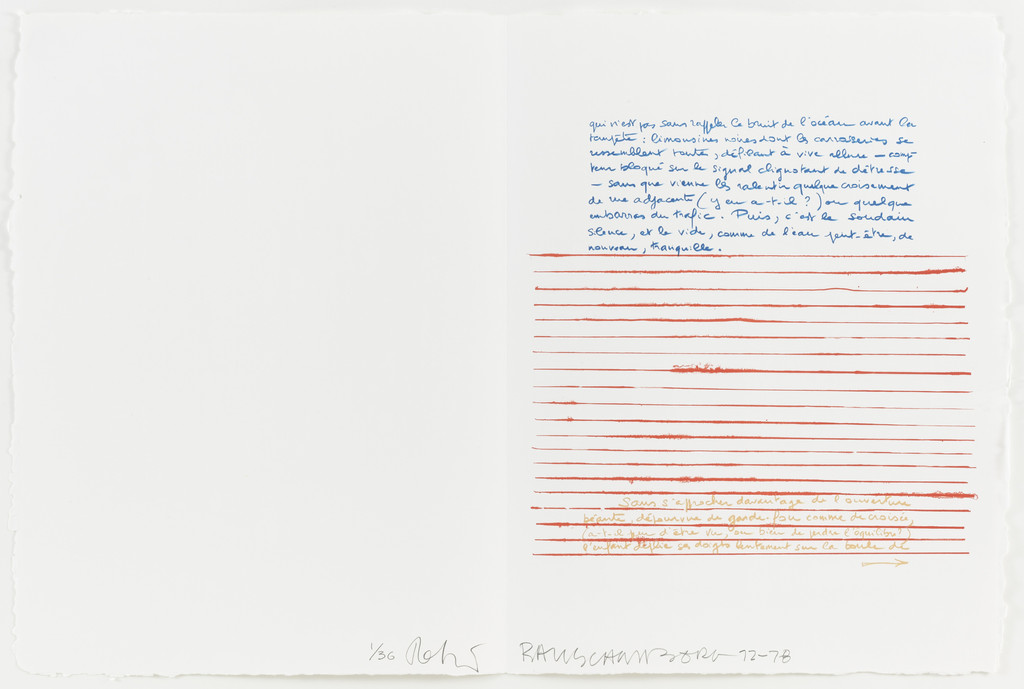 qui n'est pas sans rappeler le bruit de l'océan avant la
tempête : limousines noires dont les carrosseries se
ressemblent toutes, défilant à vive allure — comp-
teur bloqué sur le signal clignotant de détresse
— sans que vienne les ralentir quelque croisement
de rue adjacente (y en a-t-il ?) ou quelque
embarras du trafic. Puis, c'est le soudain
silence, et le vide, comme de l'eau peut-être, de
nouveau, tranquille.
Sans s'approcher davantage de l'ouverture
béante, dépourvue de garde-fou comme de croisée,
(a-t-il peur d'être vu, ou bien de perdre l'équilibre ?)
l'enfant déplie ses doigts lentement sur la boule de
1/36 Robert RAUSCHENBERG 72-78